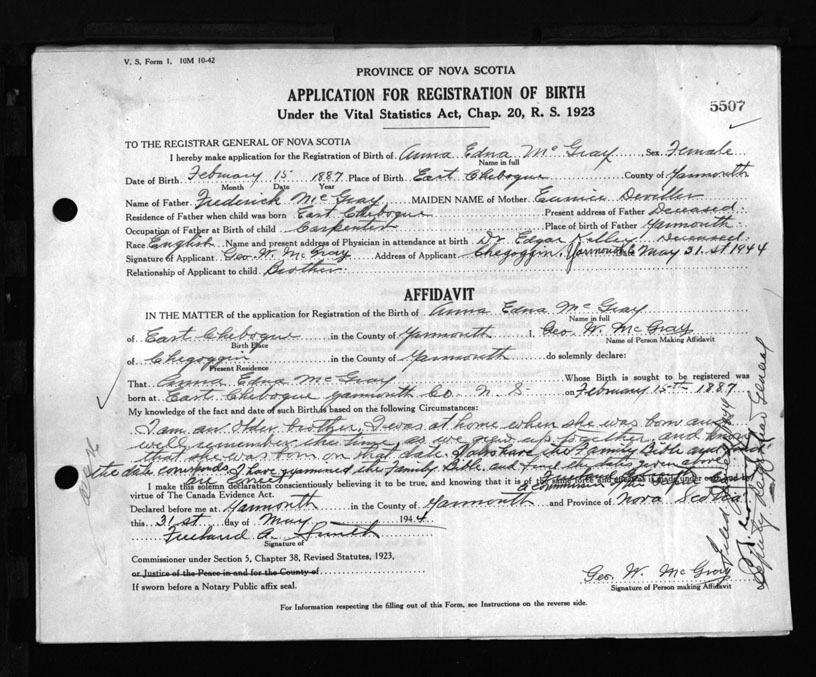 V. S. Form 1. 10M 10-42
PROVINCE OF NOVA SCOTIA
APPLICATION FOR REGISTRATION OF BIRTH
5507
Under the Vital Statistics Act, Chap. 20, R. S. 1923
TO THE REGISTRAR GENERAL OF NOVA SCOTIA
I hereby make application for the Registration of Birth of Anna Edna McGray, Sex Female
Name in full
Date of Birth February 15 1887 Place of Birth East Chebogue County of Yarmouth
Month Date Year
Name of Father Frederick McGray MAIDEN NAME of Mother Eunice Deviller
Residence of Father when child was born East Chebogue Present address of Father Deceased
Occupation of Father at Birth of child Carpenter Place of birth of Father Yarmouth
Race English Name and present address of Physician in attendance at birth Dr. Edgar Kelley Deceased
Signature of Applicant Geo. W. McGray Address of Applicant Chegoggin, Yarmouth Co May 31.st 1944
Relationship of Applicant to child Brother
AFFIDAVIT
IN THE MATTER of the application for Registration of the Birth of Anna Edna McGray
Name in full
of East Chebogue in the County of Yarmouth I, Geo. W. McGray
Birth Place Name of Person Making Affidavit
of Chegoggin in the County of Yarmouth do solemnly declare:
Present Residence
That Anna Edna McGray Whose Birth is sought to be registered was
born at East Chebogue Yarmouth Co. N. S. on February 15th 1887
My knowledge of the fact and date of such Birth is based on the following Circumstances:
I am an older brother, I was at home when she was born and
well remember the time, as we grew up together, and know
that she was born on that date. I also have the Family Bible and
the date corresponds. I have examined the Family Bible and find the dates given above
are correct
I make this solemn declaration conscientiously believing it to be true, and knowing that it is of the same force and effect as if made under oath and by
virtue of The Canada Evidence Act. A Commissioner of the Supreme Court
Declared before me at Yarmouth in the County of Yarmouth and Province of Nova Scotia
this 31st day of May 1944.
Freeland A. Smith
Signature of
Commissioner under Section 5, Chapter 38, Revised Statutes, 1923,
or Justice of the Peace in and for the County of
If sworn before a Notary Public affix seal.
Geo. W. McGray
Signature of Person making Affidavit
For Information respecting the filling out of this Form, see Instructions on the reverse side.
Deputy Registrar General